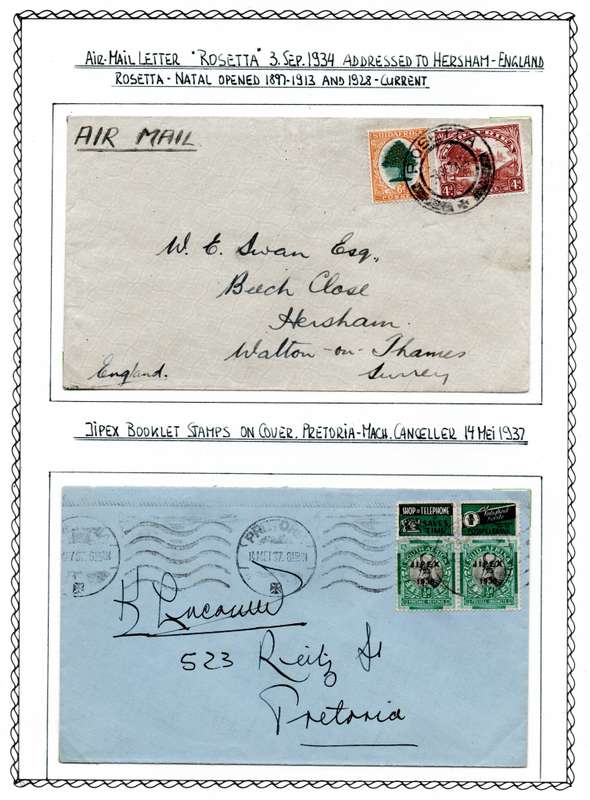 AIR-MAIL LETTER "ROSETTA" 3. SEP. 1934 ADDRESSED TO HERSHAM - ENGLAND
ROSETTA - NATAL OPENED 1897-1913 AND 1928 - CURRENT
AIR MAIL
SUIDAFRIKA
6D
4D
ROSETTA
W. E. Swan Esq.,
Beech Close
Hersham.
Walton-on-Thames
Surrey
England.
JIPEX BOOKLET STAMPS ON COVER. PRETORIA - MACH. CANCELLER 14 MEI 1937
SHOP by TELEPHONE
SAVES
TIME
PRETORIA
14 MEI 37
JIPEX
1936
JIPEX
1936
523 Reitz St
Pretoria